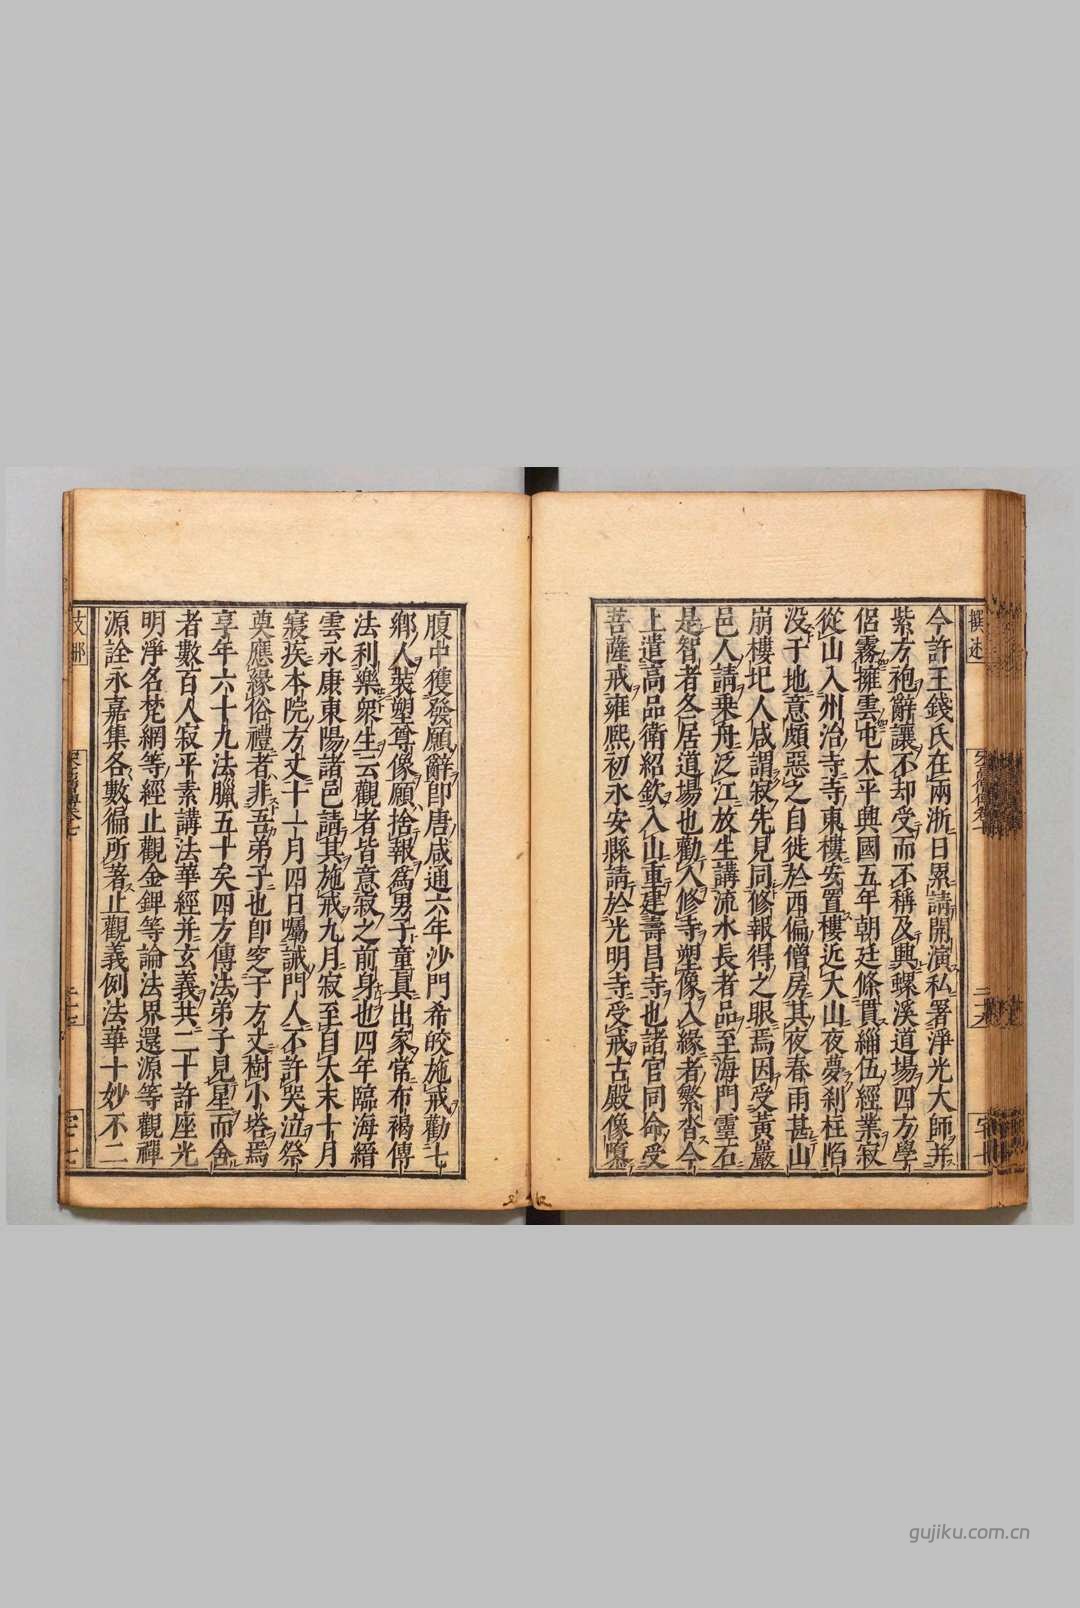 撰述
今許王錢氏在兩浙日累請開演私署淨光大師并
紫方袍辭讓不却受而不稱及興螺溪道場四方學
侶霧擁雲屯太平興國五年朝廷條貫緇伍經業寂
從山入州治寺寺東樓安置樓近大山夜夢刹柱陷
没于地意頗惡之自徙於西偏僧房其夜春雨甚山
崩樓圮人咸謂寂先見同修報得之眼焉因受黃巖
邑人請乗舟泛江放生講流水長者品至海門靈石
是智者各居道場也勸人修寺塑像入緣者繁沓今
上遣高品衛紹欽入山重建壽昌寺也諸官同命受
菩薩戒雍熙初永安縣請於光明寺受戒古殿像隳
腹中獲發願辭卽唐咸通六年沙門希皎施戒勸七
鄉人裝塑尊像願捨報爲男子童眞出家常布褐傳
法利樂衆生云觀者皆意寂之前身也四年臨海縉
雲永康東陽諸邑請其施戒九月寂至自太末十月
寢疾本院方丈十一月四日囑誡門人不許哭泣祭
奠應緣俗禮者非吾弟子也卽窆于方丈樹小塔焉
享年六十九法臘五十矣四方傳法弟子見星而舍
者數百人寂平素講法華經并玄義共二十許座光
明淨名梵網等經止觀金錍等論法界還源等觀禪
源詮永嘉集各數徧所著止觀義例法華十妙不二
gujiku.com.cn